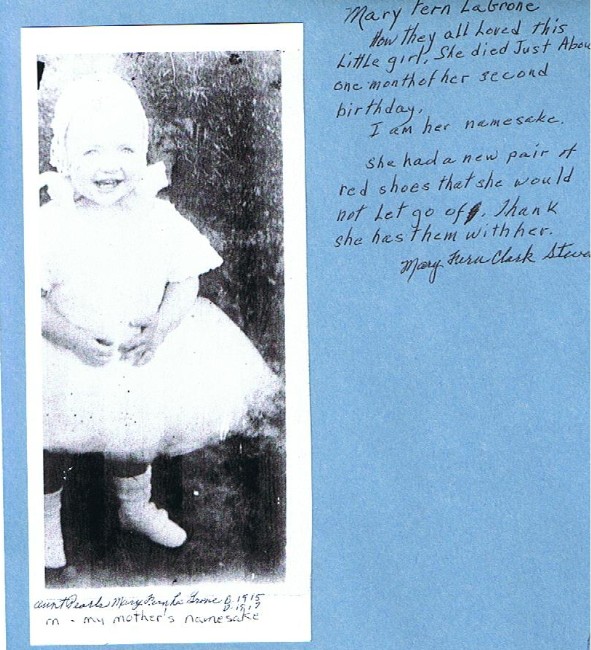 Mary Fern LaGrone
How they all Loved this
Little girl. She died Just Abou
one month of her second
birthday.
I am her namesake.
She had a new pair of
red shoes that she would
not Let go of. I hank
she has them with her.
Mary Fern Clark Steve
Aunt Pearls Mary Fern La Grone B. 1915
D. 1917
m - my mother's namesake